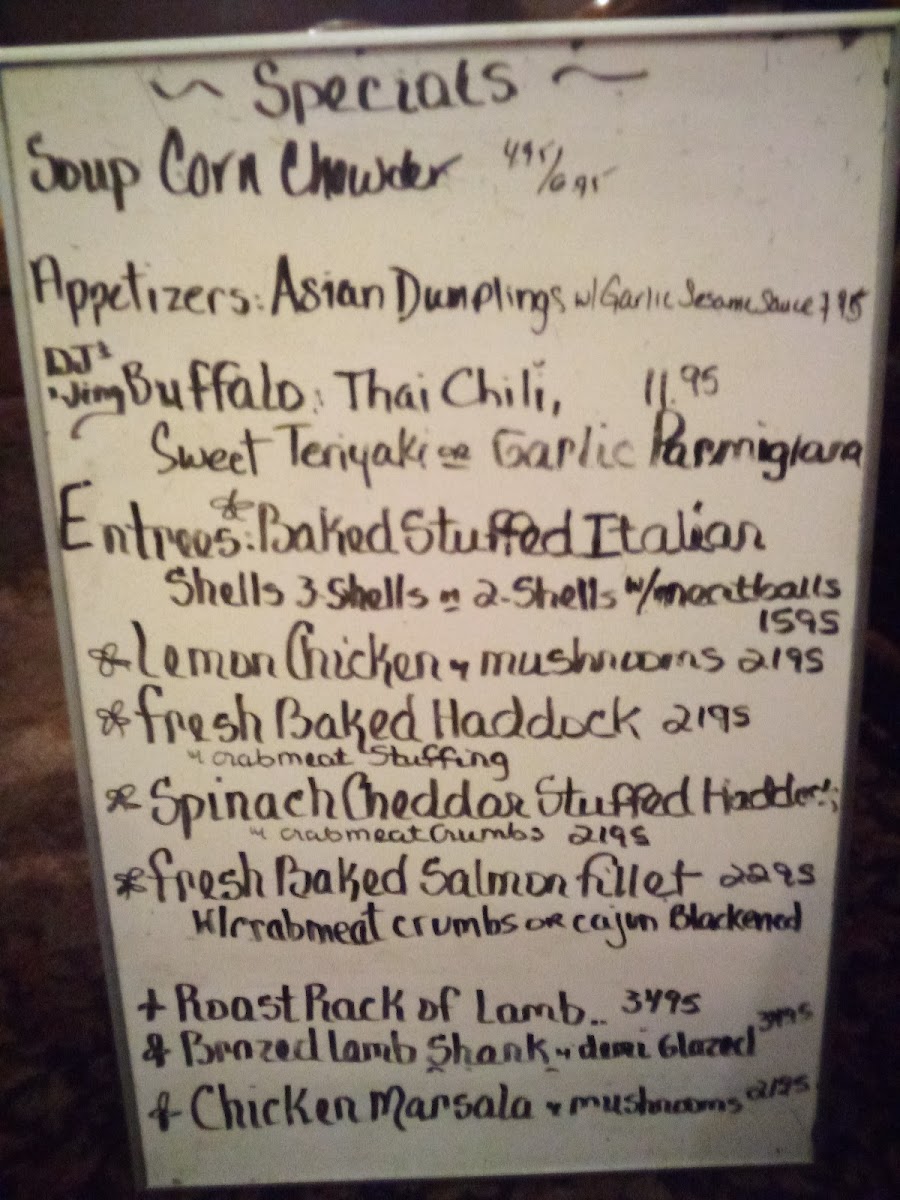 ~ Specials ~
Soup Corn Chowder 4.95/6.95
Appetizers: Asian Dumplings w/ Garlic Sesame Sauce 7 95
DJ's
Wing Buffalo: Thai Chili, 11.95
Sweet Teriyaki or Garlic Parmigiana
Entrees: *Baked Stuffed Italian
Shells 3-Shells or 2-Shells w/meatballs
1595
*Lemon Chicken w mushrooms 2195
*fresh Baked Haddock 2195
w crabmeat Stuffing
*Spinach Cheddar Stuffed Haddock
w crabmeat Crumbs 2195
*fresh Baked Salmon fillet 2295
W/crabmeat crumbs or cajun Blackened
+ Roast Rack of Lamb.. 3495
& Brazed lamb Shank w demi Glazed
& Chicken Marsala w mushrooms 2195